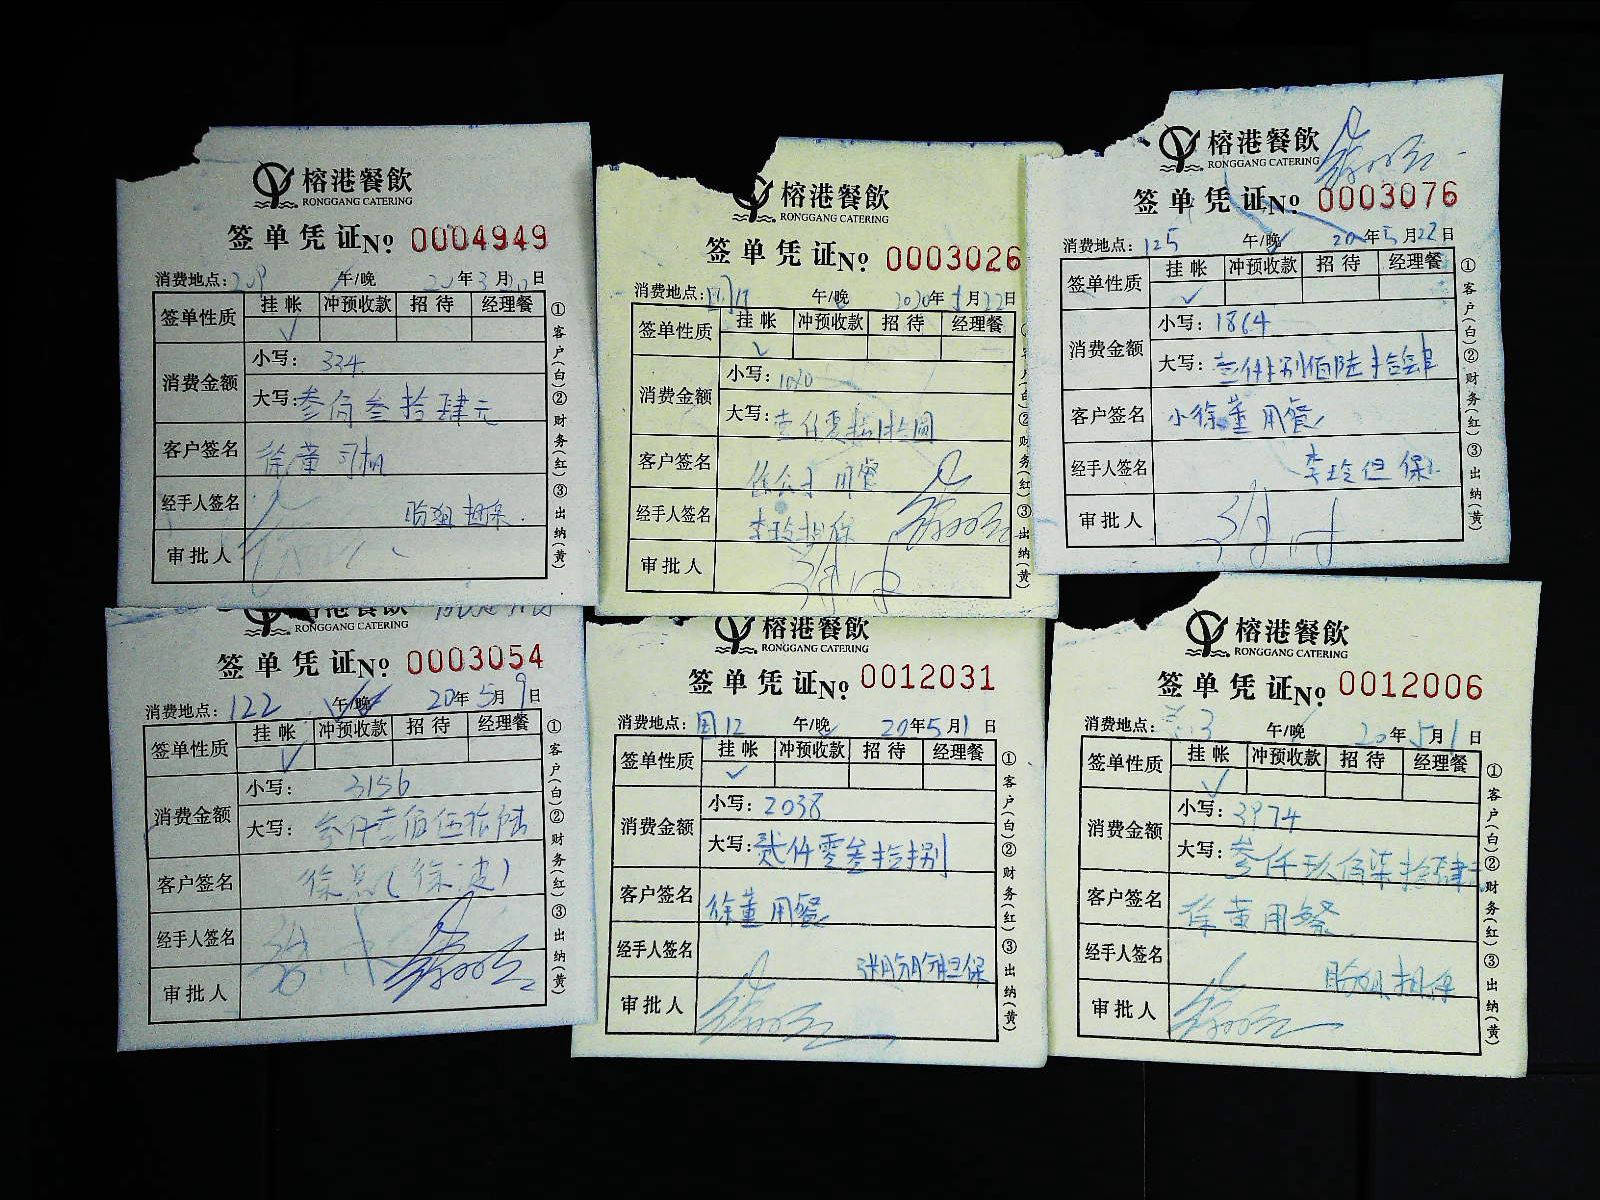 榕港餐飲
RONGGANG CATERING
签单凭证No 0004949
消费地点: 209 午/晚 20年3月20日
签单性质 挂帐 冲预收款 招待 经理餐
消费金额
小写: 334
大写: 叁佰叁拾肆元
客户签名 徐董司机
经手人签名 盼姐担保
审批人
①客户(白)②财务(红)③出纳(黄)
榕港餐飲
RONGGANG CATERING
签单凭证No 0003026
消费地点: 午/晚 2020年5月22日
签单性质 挂帐 冲预收款 招待 经理餐
消费金额
小写:
大写: 壹仟零
客户签名 用餐
经手人签名 李玲担保
审批人
客户(白)②财务(红)③出纳(黄)
榕港餐飲
RONGGANG CATERING
签单凭证No 0003076
消费地点: 125 午/晚 20年5月22日
签单性质 挂帐 冲预收款 招待 经理餐
消费金额
小写: 1864
大写: 壹仟捌佰陆拾肆
客户签名 小徐董用餐
经手人签名 李玲担保
审批人
①客户(白)②财务(红)③出纳(黄)
榕港餐飲
RONGGANG CATERING
签单凭证No 0003054
消费地点: 122 午/晚 20年5月9日
签单性质 挂帐 冲预收款 招待 经理餐
消费金额
小写: 3156
大写: 叁仟壹佰伍拾陆
客户签名 徐总(徐波)
经手人签名
审批人
①客户(白)②财务(红)③出纳(黄)
榕港餐飲
RONGGANG CATERING
签单凭证No 0012031
消费地点: 国12 午/晚 20年5月1日
签单性质 挂帐 冲预收款 招待 经理餐
消费金额
小写: 2038
大写: 贰仟零叁拾捌
客户签名 徐董用餐
经手人签名 张盼盼担保
审批人
①客户(白)②财务(红)③出纳(黄)
榕港餐飲
RONGGANG CATERING
签单凭证No 0012006
消费地点: 午/晚 20年5月1日
签单性质 挂帐 冲预收款 招待 经理餐
消费金额
小写: 3974
大写: 叁仟玖佰柒拾肆元
客户签名 徐董用餐
经手人签名 盼姐担保
审批人
①客户(白)②财务(红)③出纳(黄)